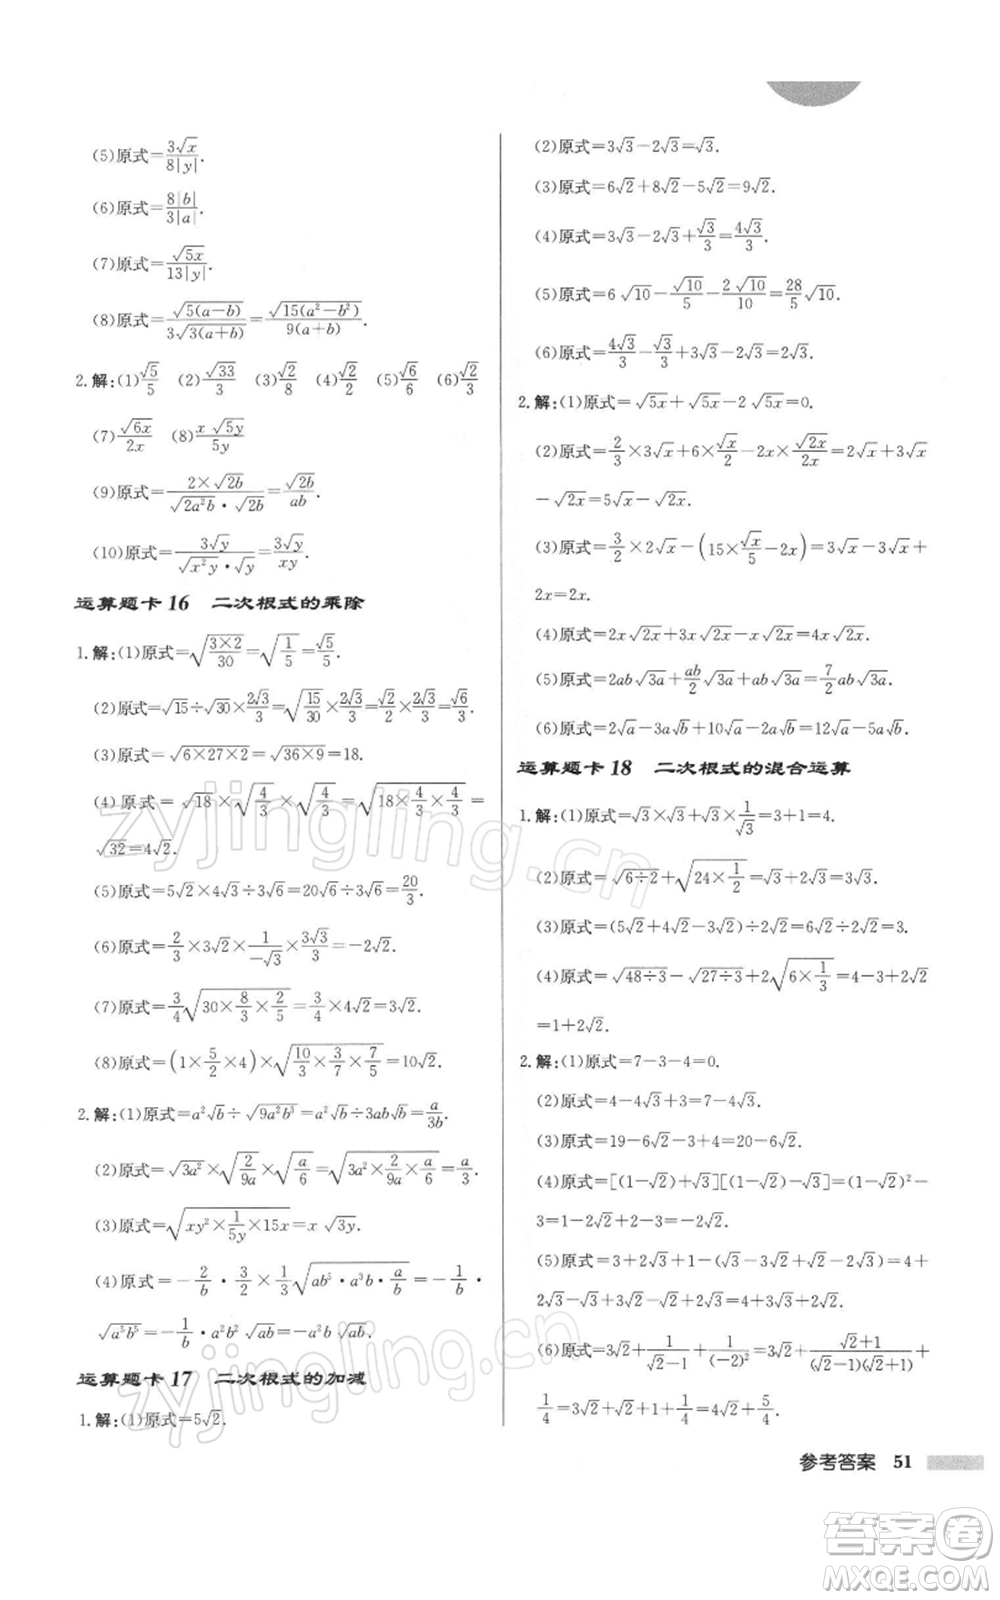 (5)原式=3√x/8|y|.
(6)原式=8|b|/3|a|.
(7)原式=√5x/13|y|.
(8)原式=√5(a-b)/3√3(a+b)=√15(a²-b²)/9(a+b).
2.解:(1)√5/5 (2)√33/3 (3)√2/8 (4)√2/2 (5)√6/6 (6)√2/3
(7)√6x/2x (8)x√5y/5y
(9)原式=2×√2b/√2a²b·√2b=√2b/ab.
(10)原式=3√y/√x²y·√y=3√y/xy.
运算题卡16 二次根式的乘除
1.解:(1)原式=√(3×2/30)=√(1/5)=√5/5.
(2)原式=√15÷√30×2√3/3=√(15/30)×2√3/3=√2/2×2√3/3=√6/3.
(3)原式=√6×27×2=√36×9=18.
(4)原式=√18×√(4/3)×√(4/3)=√(18×4/3×4/3)=
√32=4√2.
(5)原式=5√2×4√3÷3√6=20√6÷3√6=20/3.
(6)原式=2/3×3√2×1/-√3×3√3/3=-2√2.
(7)原式=3/4√(30×8/3×2/5)=3/4×4√2=3√2.
(8)原式=(1×5/2×4)×√(10/3×3/7×7/5)=10√2.
2.解:(1)原式=a²√b÷√9a²b³=a²√b÷3ab√b=a/3b.
(2)原式=√3a²×√(2/9a)×√(a/6)=√(3a²×2/9a×a/6)=a/3.
(3)原式=√(xy²×1/5y×15x)=x√3y.
(4)原式=-2/b·3/2×1/3√(ab⁵·a³b·a/b)=-1/b·
√a⁵b⁵=-1/b·a²b²√ab=-a²b√ab.
运算题卡17 二次根式的加减
1.解:(1)原式=5√2.
(2)原式=3√3-2√3=√3.
(3)原式=6√2+8√2-5√2=9√2.
(4)原式=3√3-2√3+√3/3=4√3/3.
(5)原式=6√10-√10/5-2√10/10=28/5√10.
(6)原式=4√3/3-√3/3+3√3-2√3=2√3.
2.解:(1)原式=√5x+√5x-2√5x=0.
(2)原式=2/3×3√x+6×√x/2-2x×√2x/2x=2√x+3√x
-√2x=5√x-√2x.
(3)原式=3/2×2√x-(15×√x/5-2x)=3√x-3√x+
2x=2x.
(4)原式=2x√2x+3x√2x-x√2x=4x√2x.
(5)原式=2ab√3a+ab/2√3a+ab√3a=7/2ab√3a.
(6)原式=2√a-3a√b+10√a-2a√b=12√a-5a√b.
运算题卡18 二次根式的混合运算
1.解:(1)原式=√3×√3+√3×1/√3=3+1=4.
(2)原式=√6÷2+√(24×1/2)=√3+2√3=3√3.
(3)原式=(5√2+4√2-3√2)÷2√2=6√2÷2√2=3.
(4)原式=√48÷3-√27÷3+2√(6×1/3)=4-3+2√2
=1+2√2.
2.解:(1)原式=7-3-4=0.
(2)原式=4-4√3+3=7-4√3.
(3)原式=19-6√2-3+4=20-6√2.
(4)原式=[(1-√2)+√3][(1-√2)-√3]=(1-√2)²-
3=1-2√2+2-3=-2√2.
(5)原式=3+2√3+1+(√3-3√2+√2-2√3)=4+
2√3-√3+√2-3√2=4+3√3+2√2.
(6)原式=3√2+1/√2-1+1/(-2)²=3√2+√2+1/(√2-1)(√2+1)+
1/4=3√2+√2+1+1/4=4√2+5/4.
参考答案 51
zyjingling.cn
zyjingling.cn
答案卷
MXQE.COM